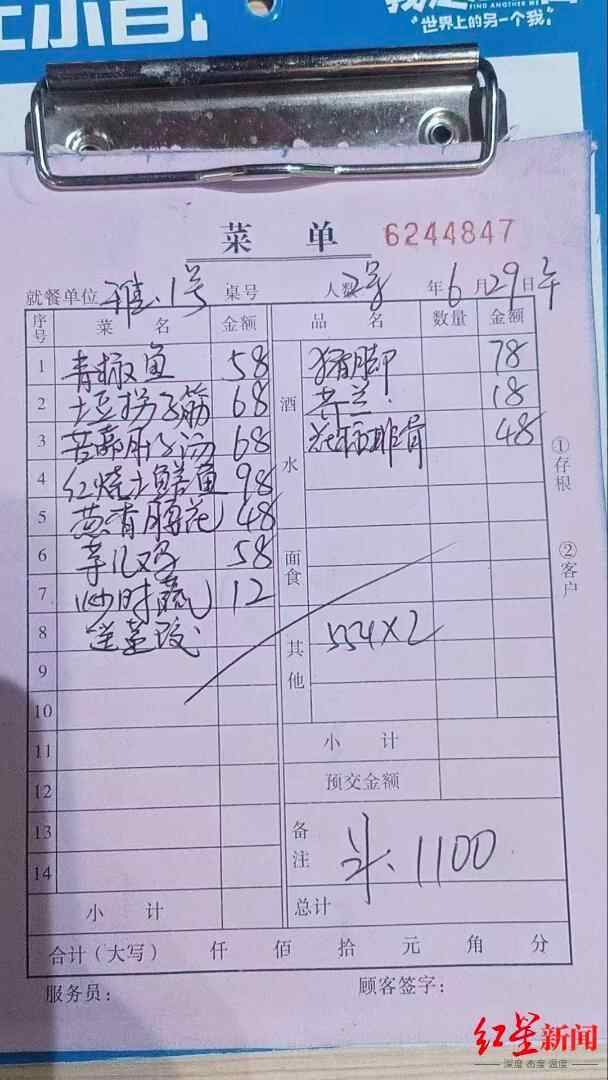 FIND ANOTHER ME
世界上的另一个我
菜 单 6244847
就餐单位 雅.1号 桌号 人数 2号 年 6 月 29 日 午
序号 菜 名 金额 品 名 数量 金额
1 青椒鱼 58 猪脚 78
2 土豆拐子筋 68 酒水 18
3 肝子汤 68 排骨 48
4 红烧土鳝鱼 98
5 葱香腰花 48
6 58 面食
7 炒时蔬 12
8 送 其他 554×2
9
10
11 小 计
12 预交金额
13 备注 1100
14
小 计 总计
合计(大写) 仟 佰 拾 元 角 分
服务员: 顾客签字:
①存根
②客户
红星新闻
深度 态度 温度